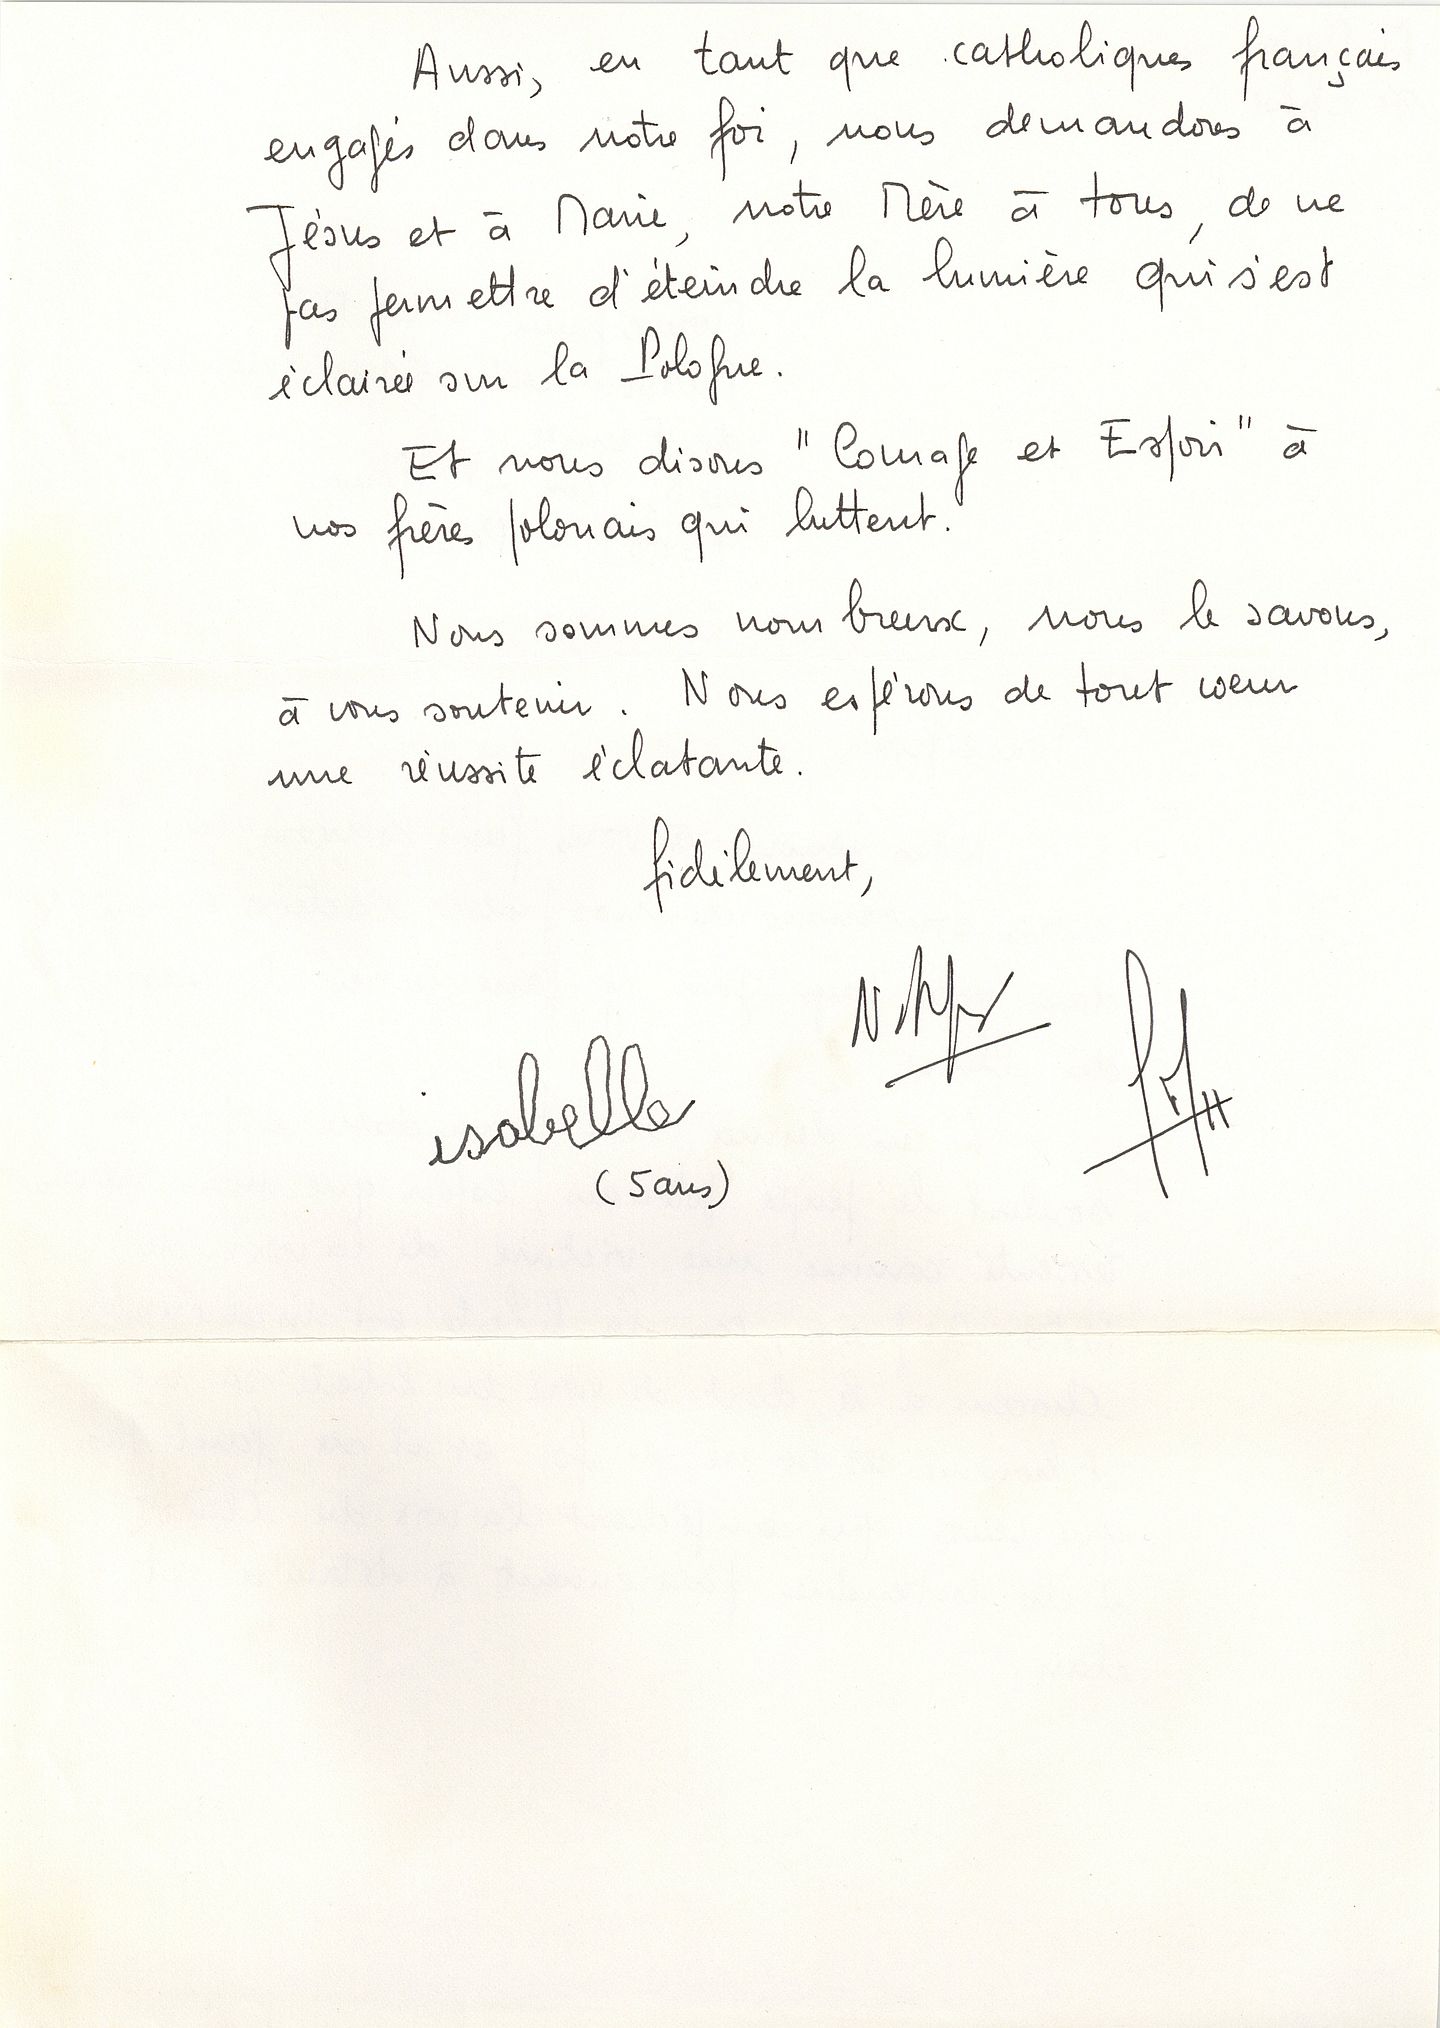 Aussi, en tant que catholiques français
engagés dans notre foi, nous demandons à
Jésus et à Marie, notre Mère à tous, de ne
pas permettre d'éteindre la lumière qui s'est
éclairée sur la Pologne.
Et nous disons "Courage et Espoir" à
nos frères polonais qui luttent.
Nous sommes nombreux, nous le savons,
à vous soutenir. Nous espérons de tout coeur
une réussite éclatante.
fidèlement,
isabelle
(5 ans)